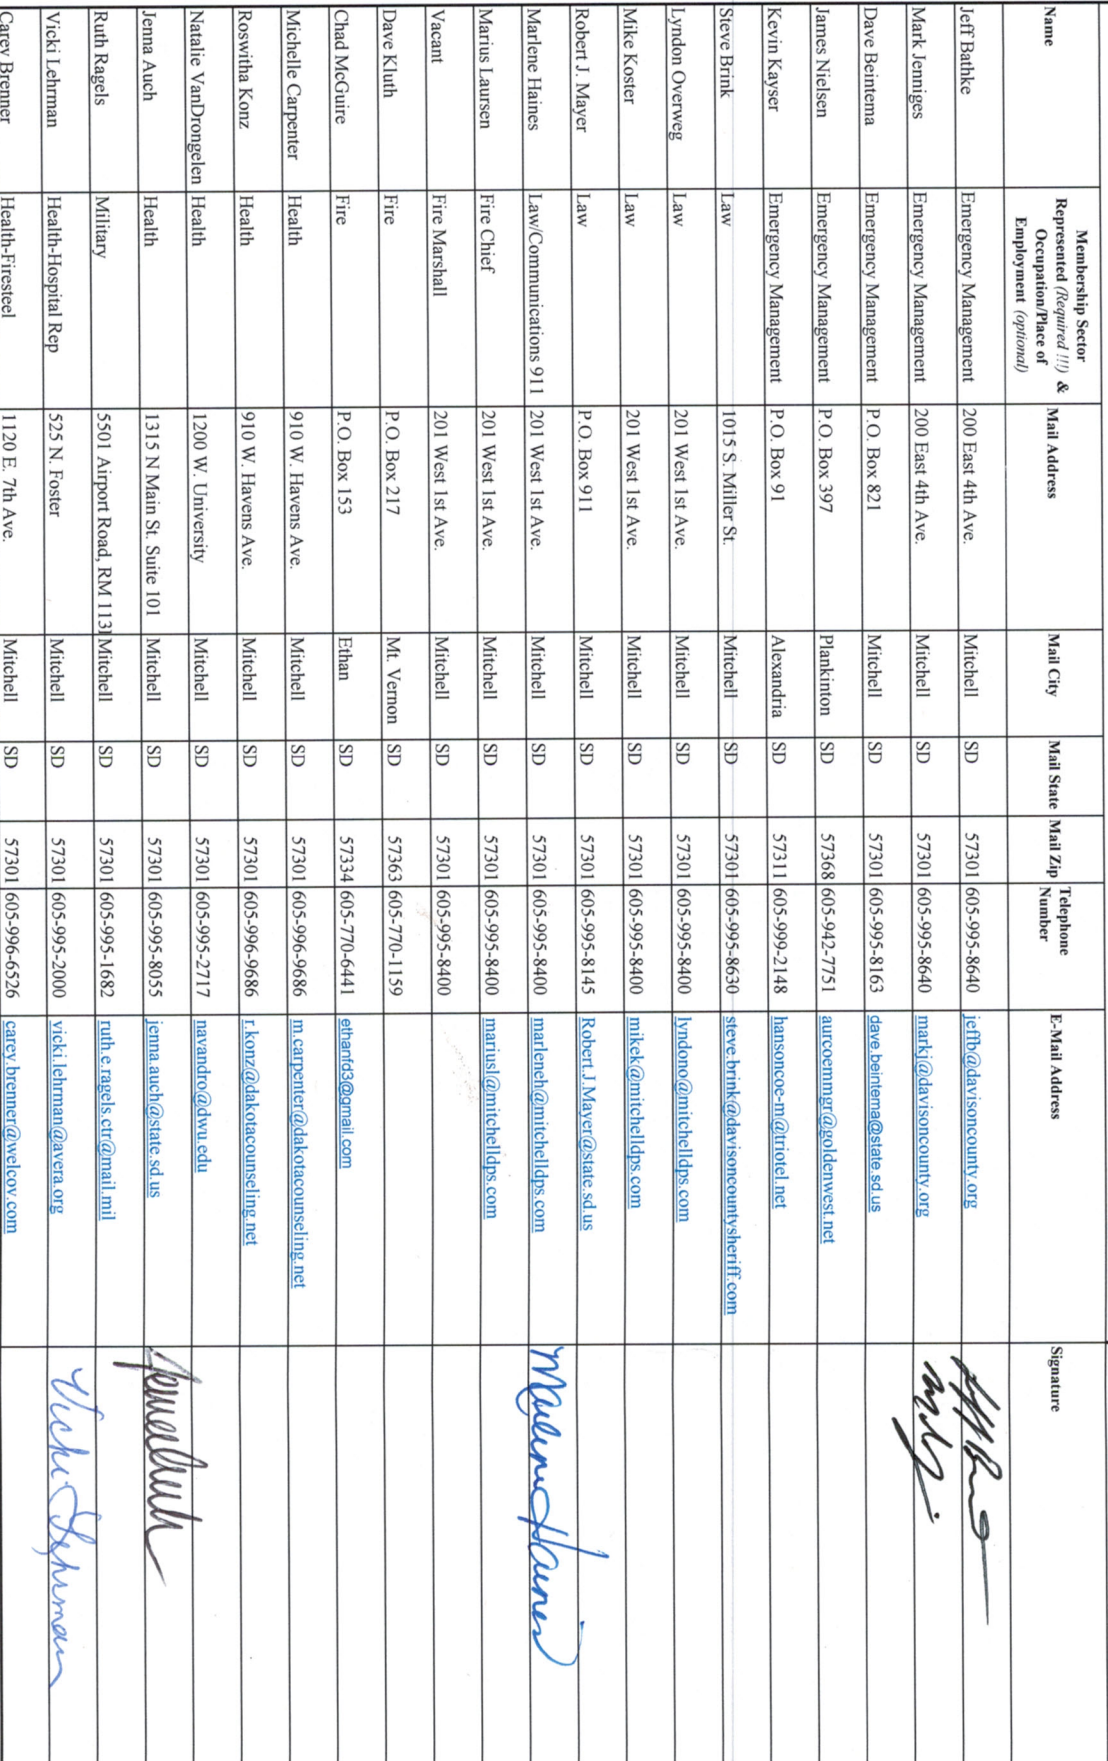 Name Membership Sector Represented (Required !!!) & Occupation/Place of Employment (optional) Mail Address Mail City Mail State Mail Zip Telephone Number E-Mail Address Signature
Jeff Bathke Emergency Management 200 East 4th Ave. Mitchell SD 57301 605-995-8640 jeffb@davisoncounty.org
Mark Jenniges Emergency Management 200 East 4th Ave. Mitchell SD 57301 605-995-8640 markj@davisoncounty.org
Dave Beintema Emergency Management P.O. Box 821 Mitchell SD 57301 605-995-8163 dave.beintema@state.sd.us
James Nielsen Emergency Management P.O. Box 397 Plankinton SD 57368 605-942-7751 aurcoemmgr@goldenwest.net
Kevin Kayser Emergency Management P.O. Box 91 Alexandria SD 57311 605-999-2148 hansoncoe-m@triotel.net
Steve Brink Law 1015 S. Miller St. Mitchell SD 57301 605-995-8630 steve.brink@davisoncountysheriff.com
Lyndon Overweg Law 201 West 1st Ave. Mitchell SD 57301 605-995-8400 lyndono@mitchelldps.com
Mike Koster Law 201 West 1st Ave. Mitchell SD 57301 605-995-8400 mikek@mitchelldps.com
Robert J. Mayer Law P.O. Box 911 Mitchell SD 57301 605-995-8145 Robert.J.Mayer@state.sd.us
Marlene Haines Law/Communications 911 201 West 1st Ave. Mitchell SD 57301 605-995-8400 marleneh@mitchelldps.com Marlene Haines
Marius Laursen Fire Chief 201 West 1st Ave. Mitchell SD 57301 605-995-8400 mariusl@mitchelldps.com
Vacant Fire Marshall 201 West 1st Ave. Mitchell SD 57301 605-995-8400
Dave Kluth Fire P.O. Box 217 Mt. Vernon SD 57363 605-770-1159
Chad McGuire Fire P.O. Box 153 Ethan SD 57334 605-770-6441 ethanfd3@gmail.com
Michelle Carpenter Health 910 W. Havens Ave. Mitchell SD 57301 605-996-9686 m.carpenter@dakotacounseling.net
Roswitha Konz Health 910 W. Havens Ave. Mitchell SD 57301 605-996-9686 r.konz@dakotacounseling.net
Natalie VanDrongelen Health 1200 W. University Mitchell SD 57301 605-995-2717 navandro@dwu.edu
Jenna Auch Health 1315 N Main St. Suite 101 Mitchell SD 57301 605-995-8055 jenna.auch@state.sd.us Jenna Auch
Ruth Ragels Military 5501 Airport Road, RM 1131 Mitchell SD 57301 605-995-1682 ruth.e.ragels.ctr@mail.mil
Vicki Lehrman Health-Hospital Rep 525 N. Foster Mitchell SD 57301 605-995-2000 vicki.lehrman@avera.org Vicki Lehrman
Carey Brenner Health-Firesteel 1120 E. 7th Ave. Mitchell SD 57301 605-996-6526 carey.brenner@welcov.com